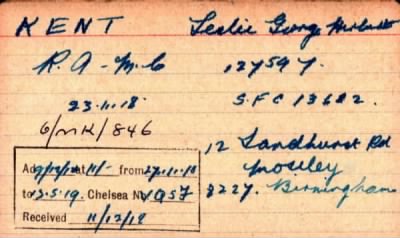 KENT Leslie George Herbert
R.A.M.C 127597.
23.11.18. S.F.C 13682.
6/MK/846
12 Sandhurst Rd
Moseley
Birmingham
at 11/- from 27.11.18
to 13.5.19. Chelsea No
Received 11/12/18